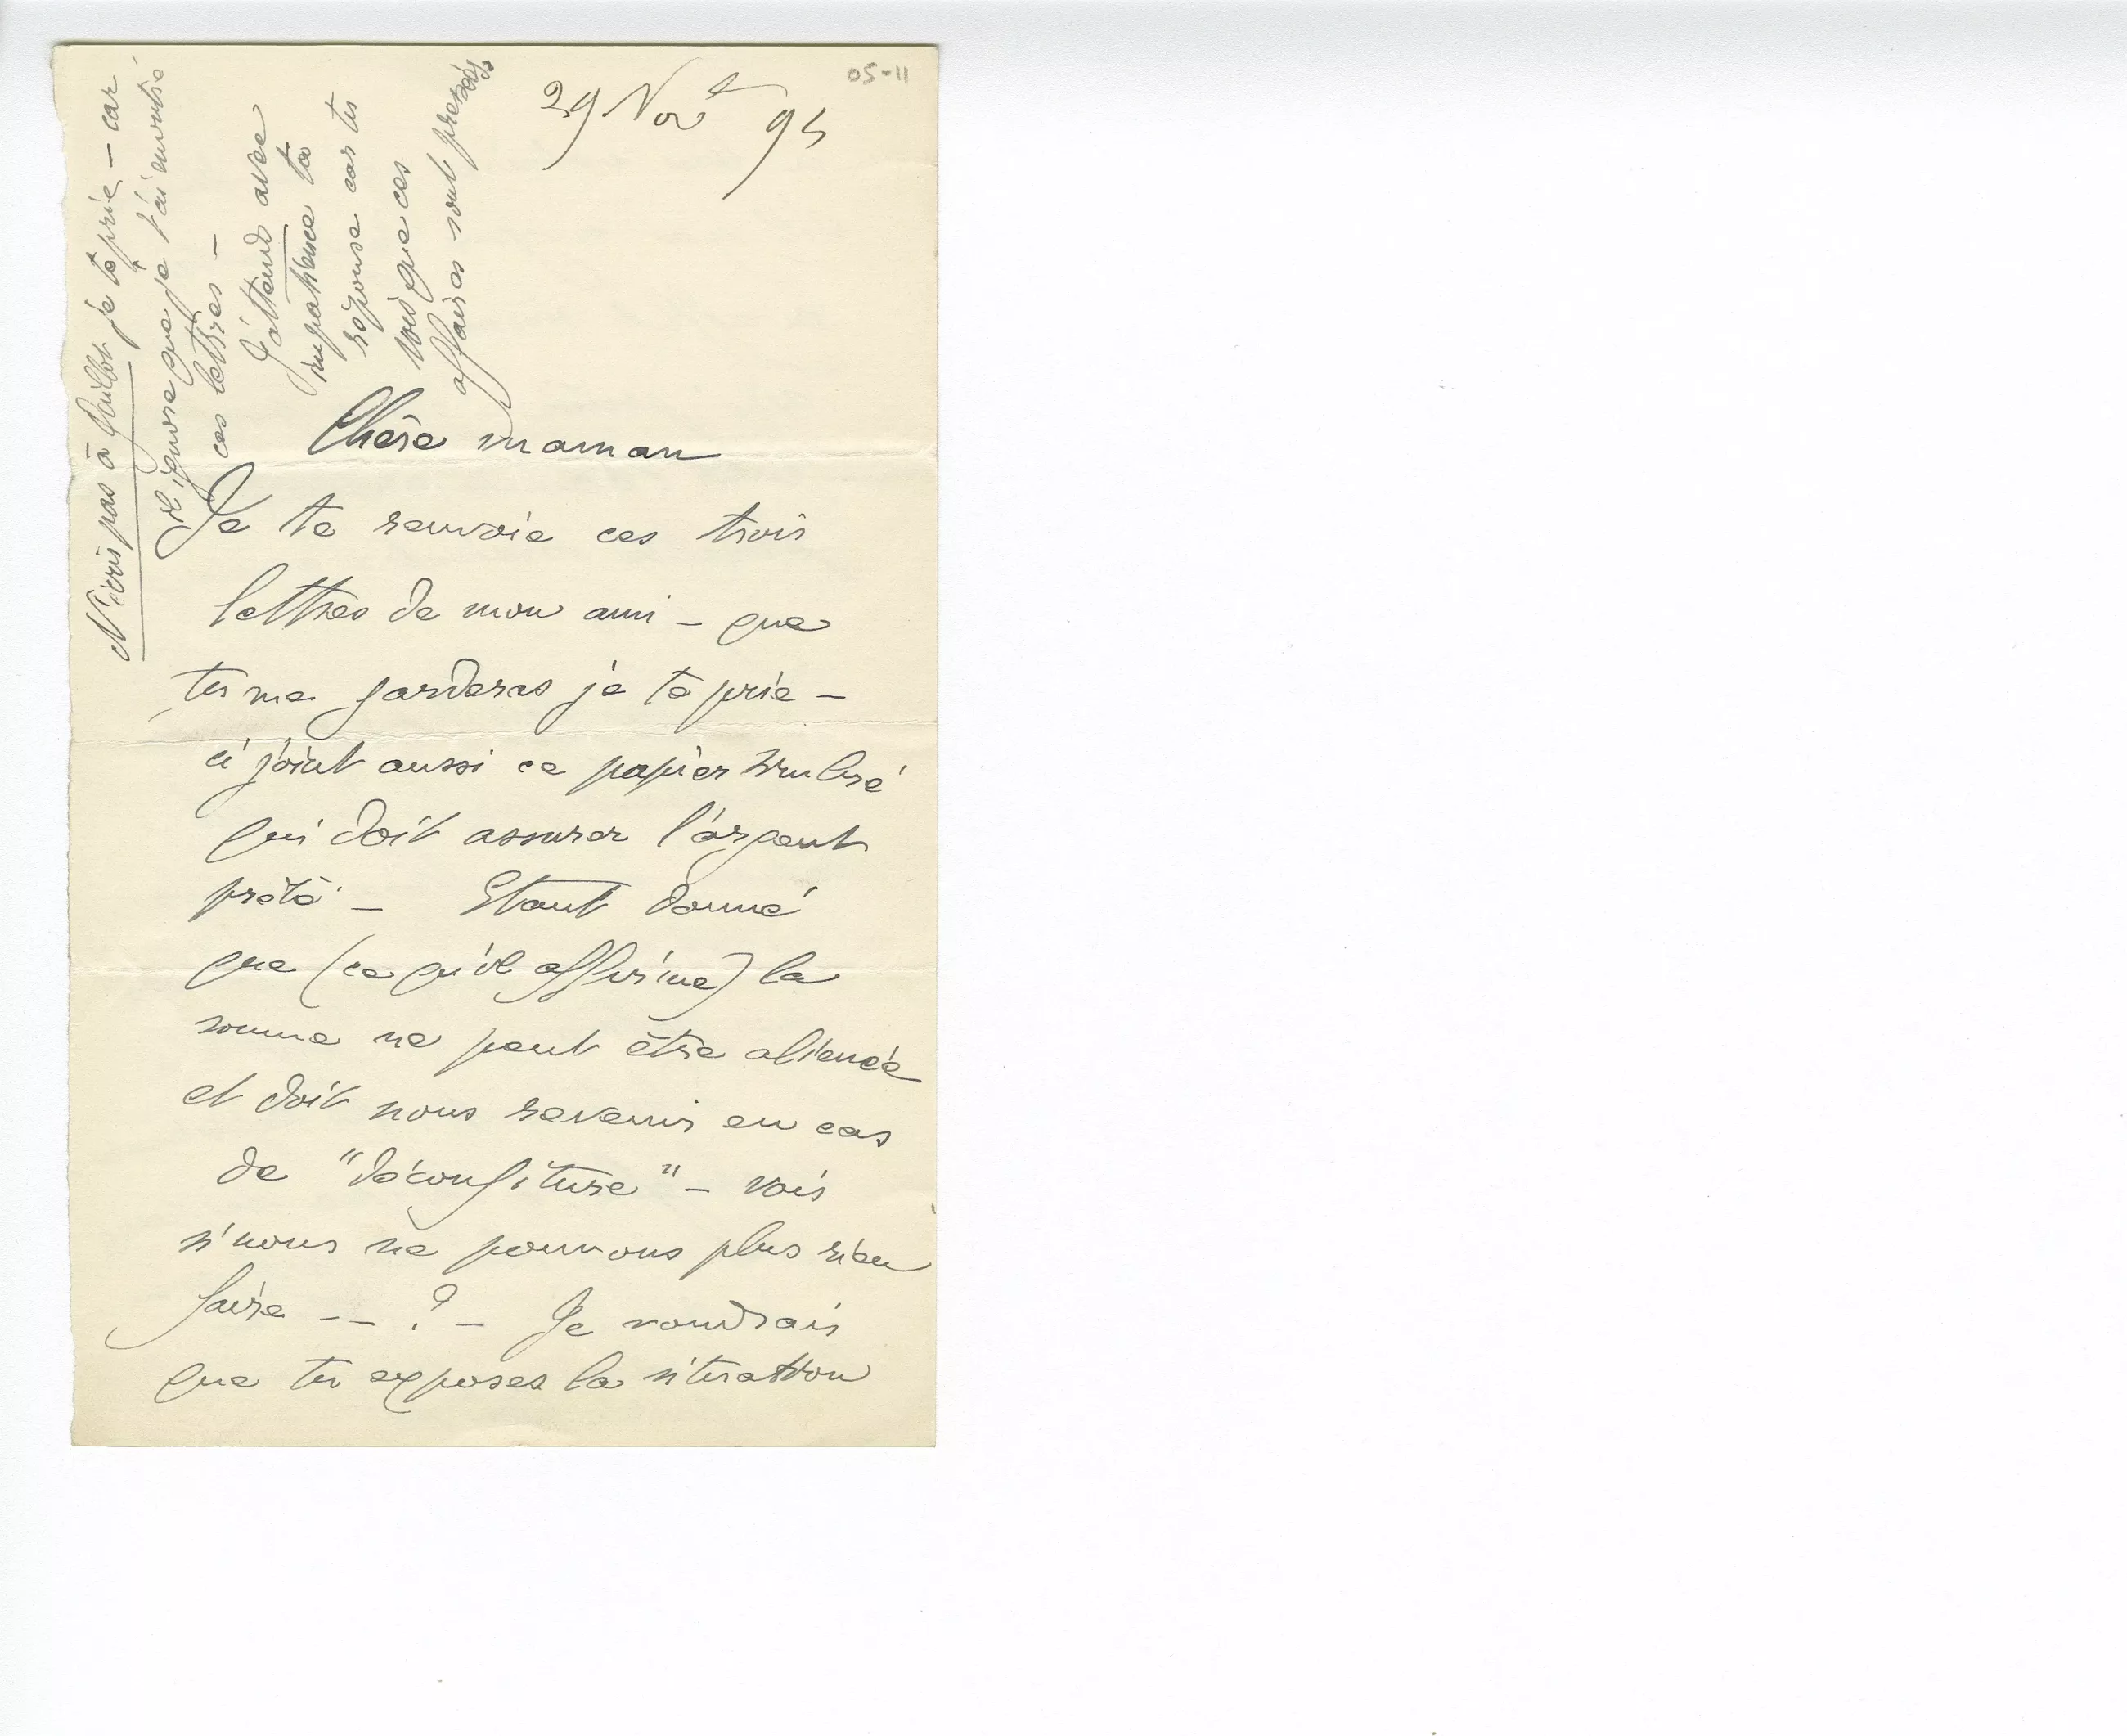 05-11
29 Nov^e 95
N'écris pas à Gaulbot je te prie – car
il ignore que je t'ai montré
ces lettres –
J'attends avec
impatience ta
réponse car tu
vois que ces
affaires sont pressées
Chère maman
Je te renvoie ces trois
lettres de mon ami – que
tu me garderas je te prie –
ci joint aussi ce papier timbré
qui doit assurer l'argent
prêté – Etant donné
que (ce qu'il affirme) la
somme ne peut être aliénée
et doit nous revenir en cas
de "déconfiture" – vois
si nous ne pouvons plus rien
faire – – ? – Je voudrais
que tu exposes la situation